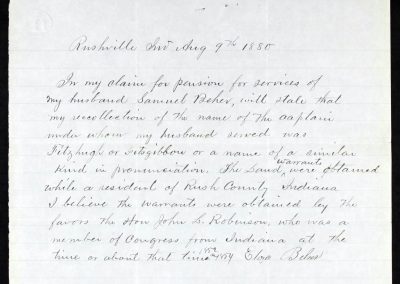 Rushville Ind Aug 9th 1880
In my claim for pension for services of
my husband Samuel Beher, will state that
my recollection of the name of the captain
under whom my husband served was
Fitzhugh or Fitsgibbon or a name of a similar
kind in pronunciation. The Land warrants were obtained
while a resident of Rush County Indiana
I believe the warrants were obtained by the
favors the Hon John L. Robinson, who was a
member of Congress from Indiana at the
time or about that time 1854